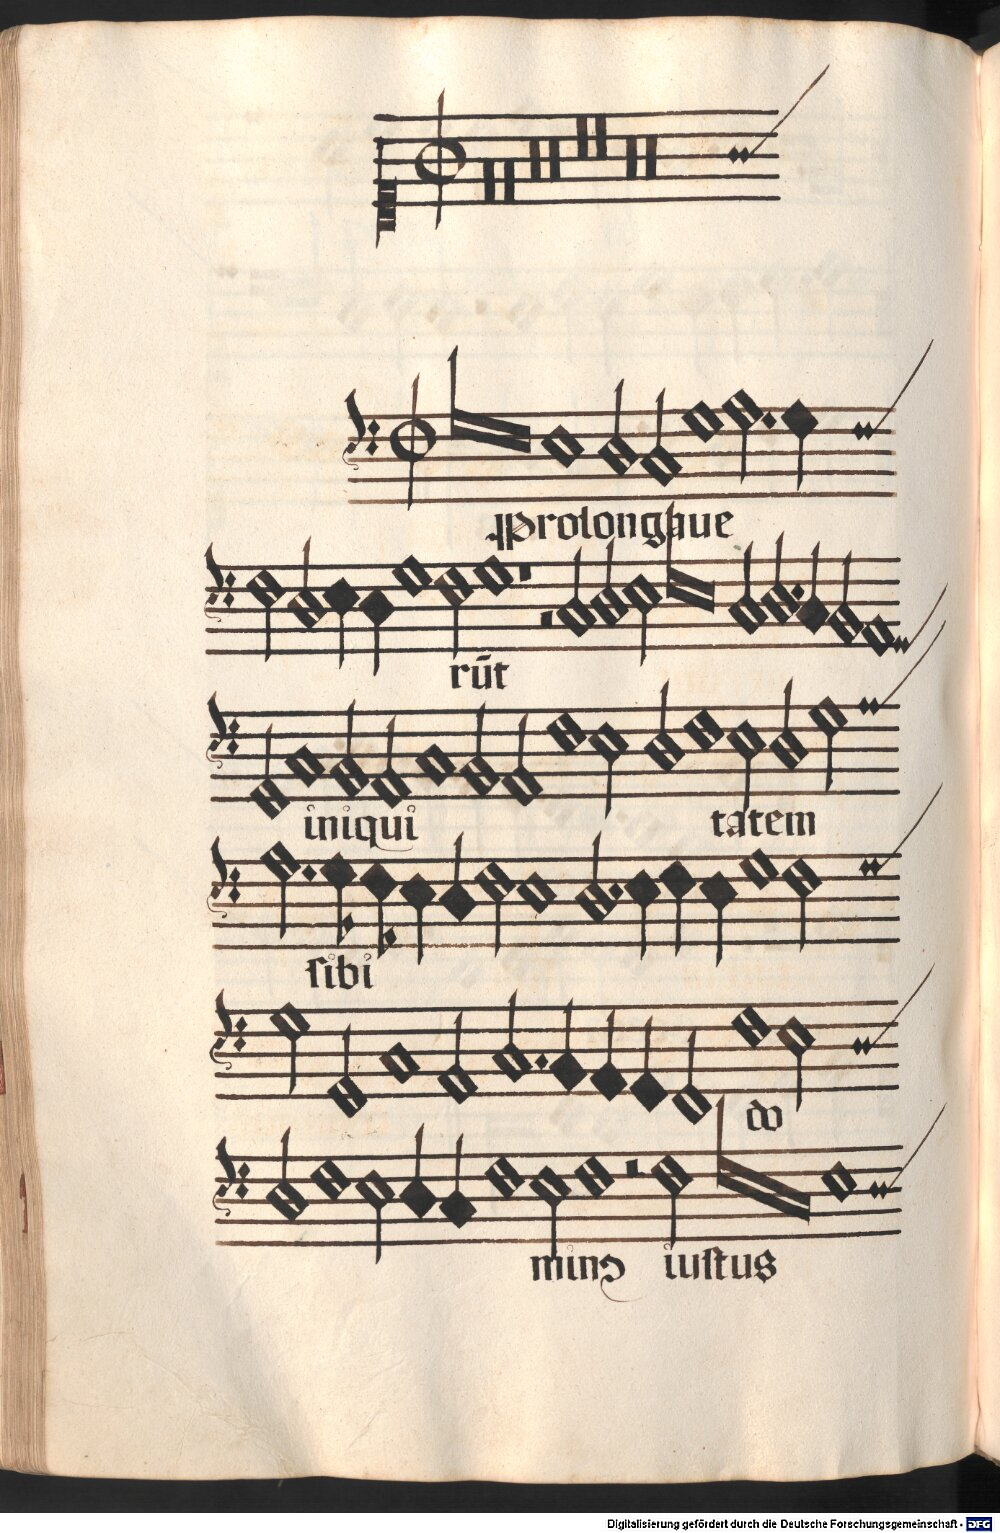 Prolongaue
rūt
iniqui tatem
sibi
do
minꝰ iustus
Digitalisierung gefördert durch die Deutsche Forschungsgemeinschaft - DFG